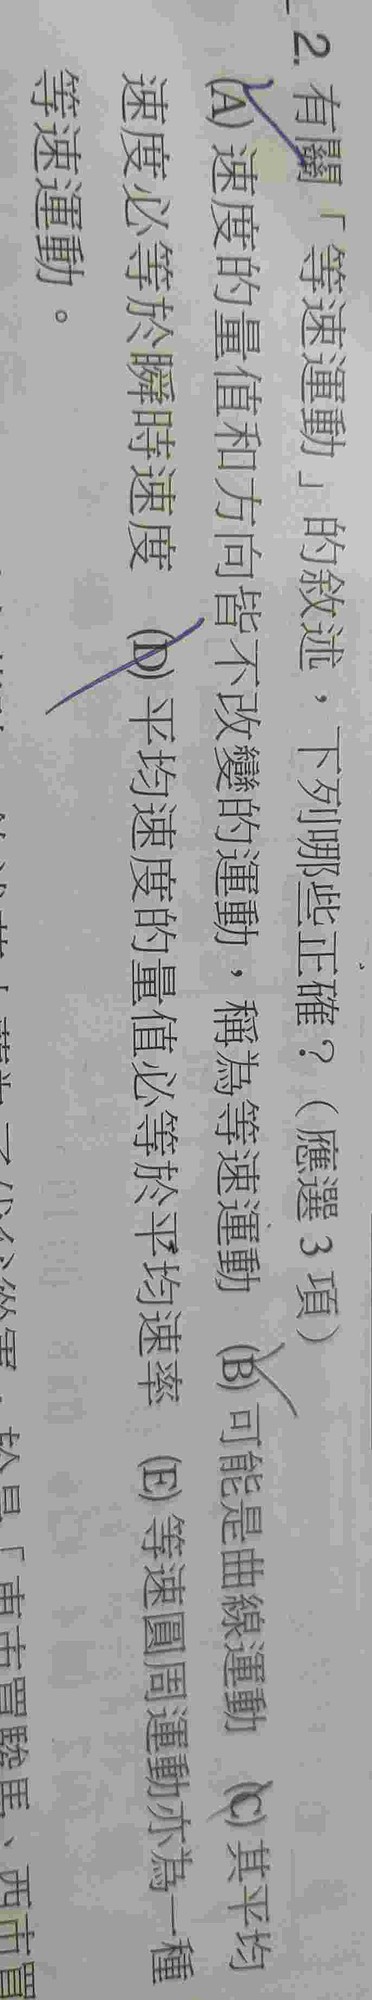 2. 有關「等速運動」的敘述，下列哪些正確？（應選 3 項）
(A) 速度的量值和方向皆不改變的運動，稱為等速運動 (B) 可能是曲線運動 (C) 其平均
速度必等於瞬時速度 (D) 平均速度的量值必等於平均速率 (E) 等速圓周運動亦為一種
等速運動。
於是「東市買駿馬、西市買